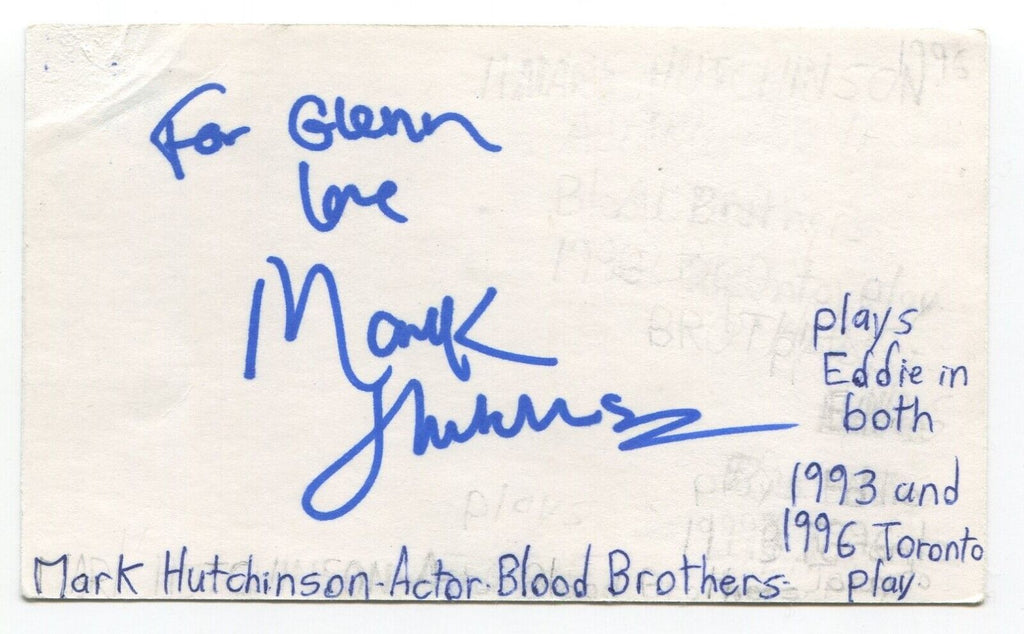 For Glenn
love
Mark
Hutchinson
plays
Eddie in
both
1993 and
1996 Toronto
Mark Hutchinson-Actor-Blood Brothers- play